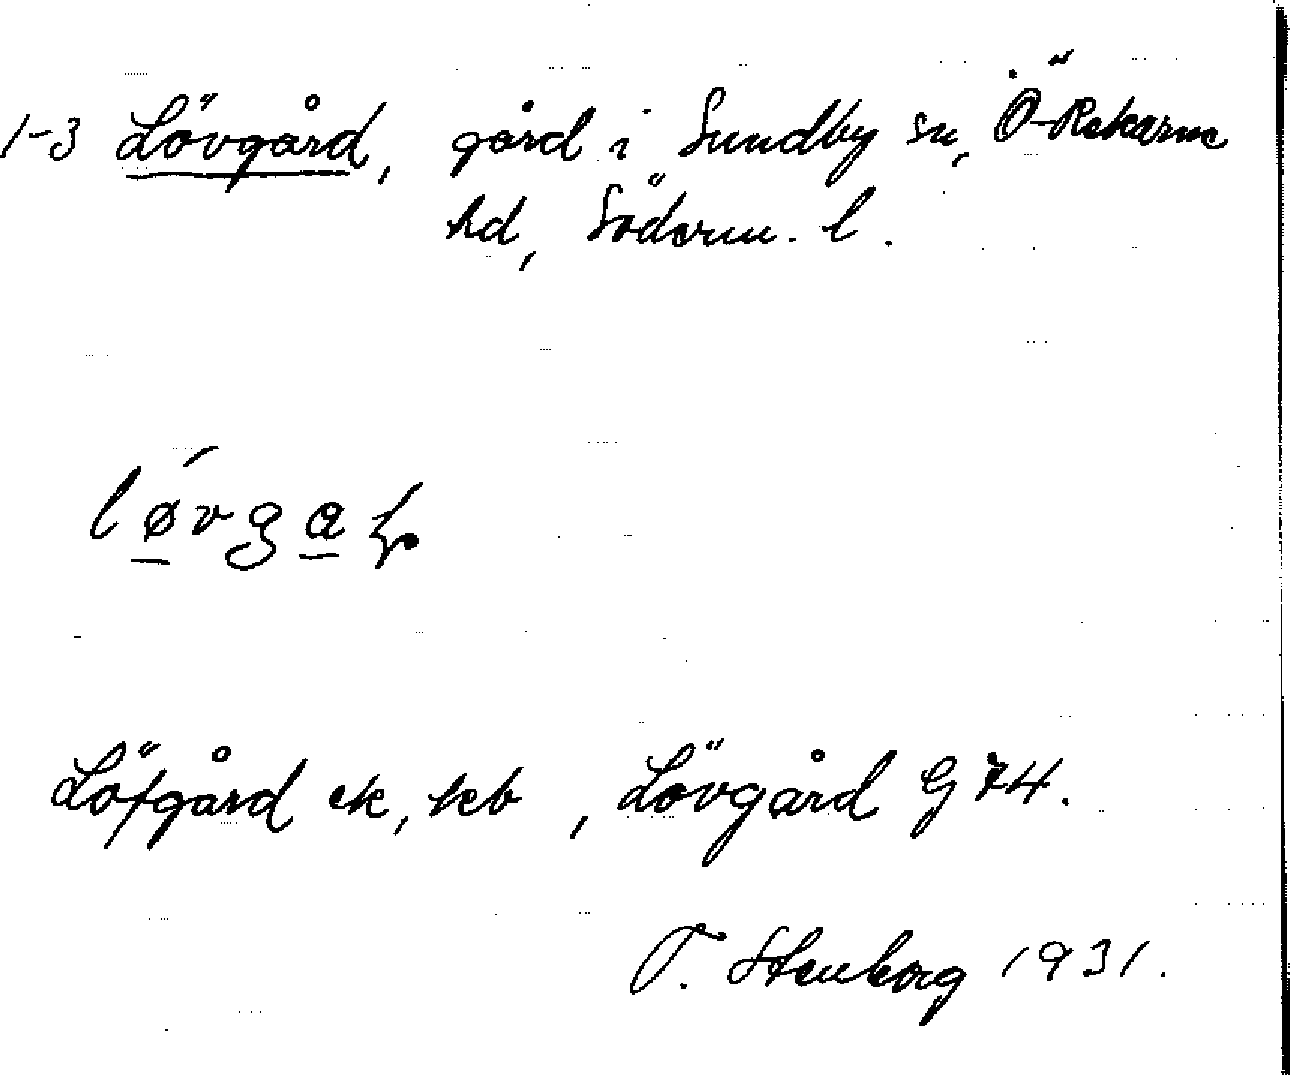 1-3 Lövgård, gård i Sundby sn, Ö-Rekarne
hd, Söderm. l.
Löfgård ek, kb, Lövgård G 74.
T. Stenborg 1931.